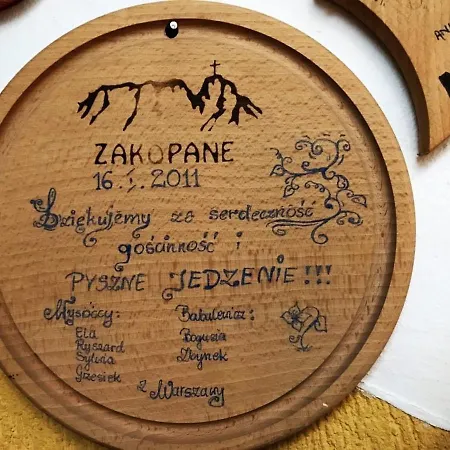 ZAKOPANE
16.1.2011
Dziękujemy za serdeczność
gościnność i
PYSZNE JEDZENIE!!!
Mysoccy:
Ela
Ryszard
Sylwia
Grzesiek
Bogusia
Zbynek
z Warszawy